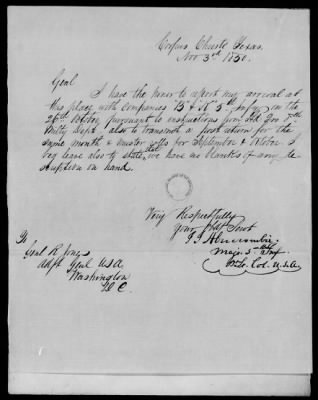 Corpus Christi Texas.
Nov 3rd 1850.
Genl
I have the honor to report my arrival at
this place with companies "B" & "K" 5th Infy on the
26th October, pursuant to instructions from Hd Qrs 7th
Milty Dept. also to transmit a post return for the
same month & muster rolls for September & October. I
beg leave also to state, that we have no blanks of any de
scription on hand.
Very Respectfully
Your Obdt Servt
J. J. Abercrombie
Major 5th Inf
Bt Lt. Col. U.S.A.
To
Genl R Jones
Adjt Genl USA
Washington
D C.